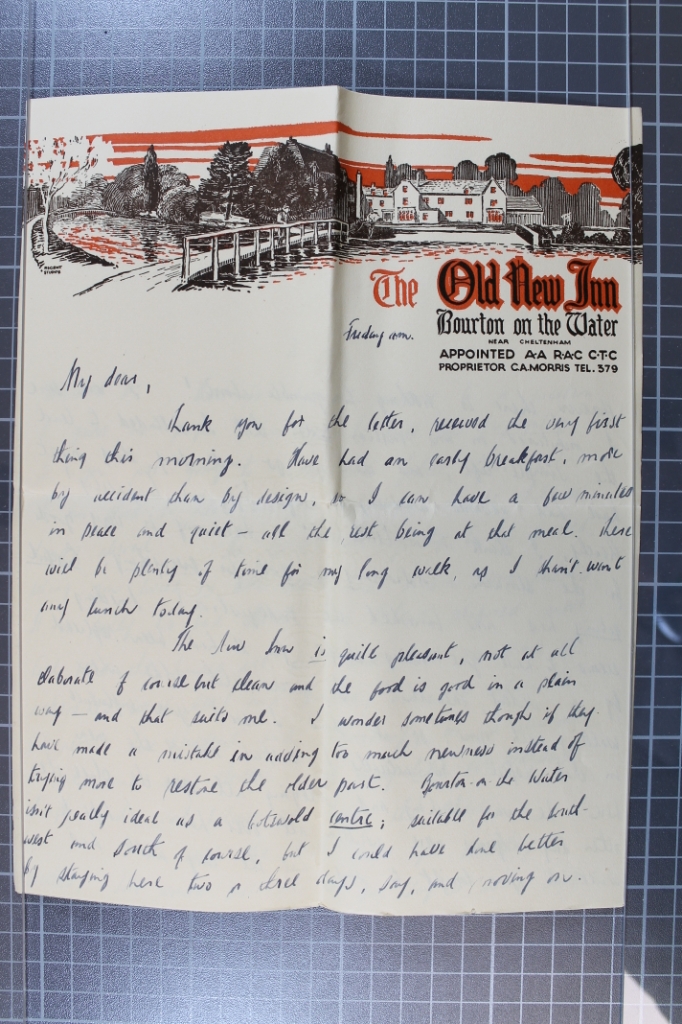 REGENT STUDIOS
The Old New Inn
Bourton on the Water
NEAR CHELTENHAM
APPOINTED A·A R·A·C C·T·C
PROPRIETOR C.A.MORRIS TEL. 379
Friday a.m.
My dear,
Thank you for the letter, received the very first
thing this morning. Have had an early breakfast, more
by accident than by design, so I can have a few minutes
in peace and quiet – all the rest being at that meal. There
will be plenty of time for my long walk, as I shan't want
any lunch today.
The New Inn is quite pleasant, not at all
elaborate of course but clean and the food is good in a plain
way – and that suits me. I wonder sometimes though if they
have made a mistake in adding too much newness instead of
trying more to restore the older part. Bourton-on the Water
isn't really ideal as a Cotswold centre; suitable for the South-
west and South of course, but I could have done better
by staying here two or three days, say, and moving on.